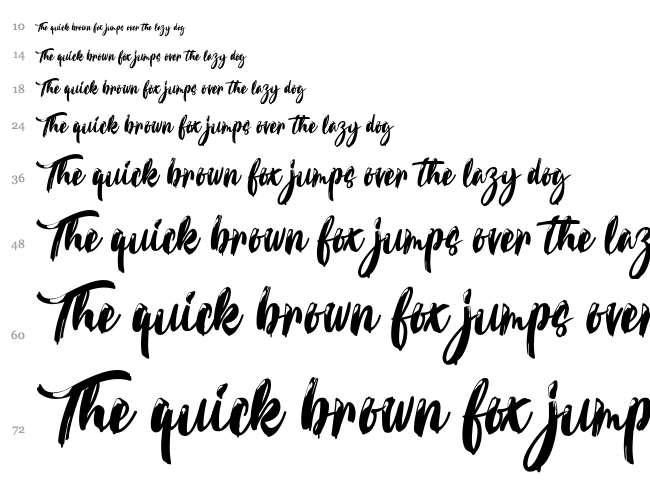 10 The quick brown fox jumps over the lazy dog
14 The quick brown fox jumps over the lazy dog
18 The quick brown fox jumps over the lazy dog
24 The quick brown fox jumps over the lazy dog
36 The quick brown fox jumps over the lazy dog
48 The quick brown fox jumps over the laz
60 The quick brown fox jumps over
72 The quick brown fox jump